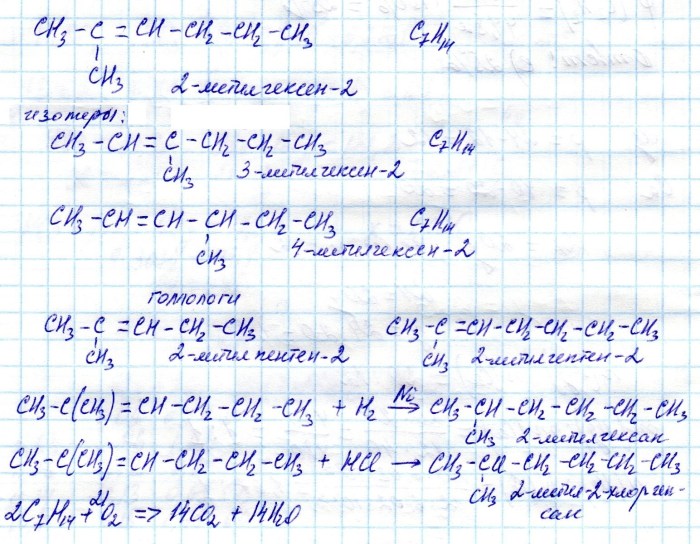 CH₃ - C = CH - CH₂ - CH₂ - CH₃ C₇H₁₄
CH₃ 2-метилгексен-2
изомеры:
CH₃ - CH = C - CH₂ - CH₂ - CH₃ C₇H₁₄
CH₃ 3-метилгексен-2
CH₃ - CH = CH - CH - CH₂ - CH₃ C₇H₁₄
CH₃ 4-метилгексен-2
гомологи
CH₃ - C = CH - CH₂ - CH₃ CH₃ - C = CH - CH₂ - CH₂ - CH₂ - CH₃
CH₃ 2-метилпентен-2 CH₃ 2-метилгептен-2
CH₃-C(CH₃) = CH - CH₂ - CH₂ - CH₃ + H₂ Ni → CH₃ - CH - CH₂ - CH₂ - CH₂ - CH₃
CH₃ 2-метилгексан
CH₃-C(CH₃) = CH - CH₂ - CH₂ - CH₃ + HCl → CH₃ - CCl - CH₂ - CH₂ - CH₂ - CH₃
CH₃ 2-метил-2-хлоргек-
сан
2C₇H₁₄ + 21O₂ => 14CO₂ + 14H₂O